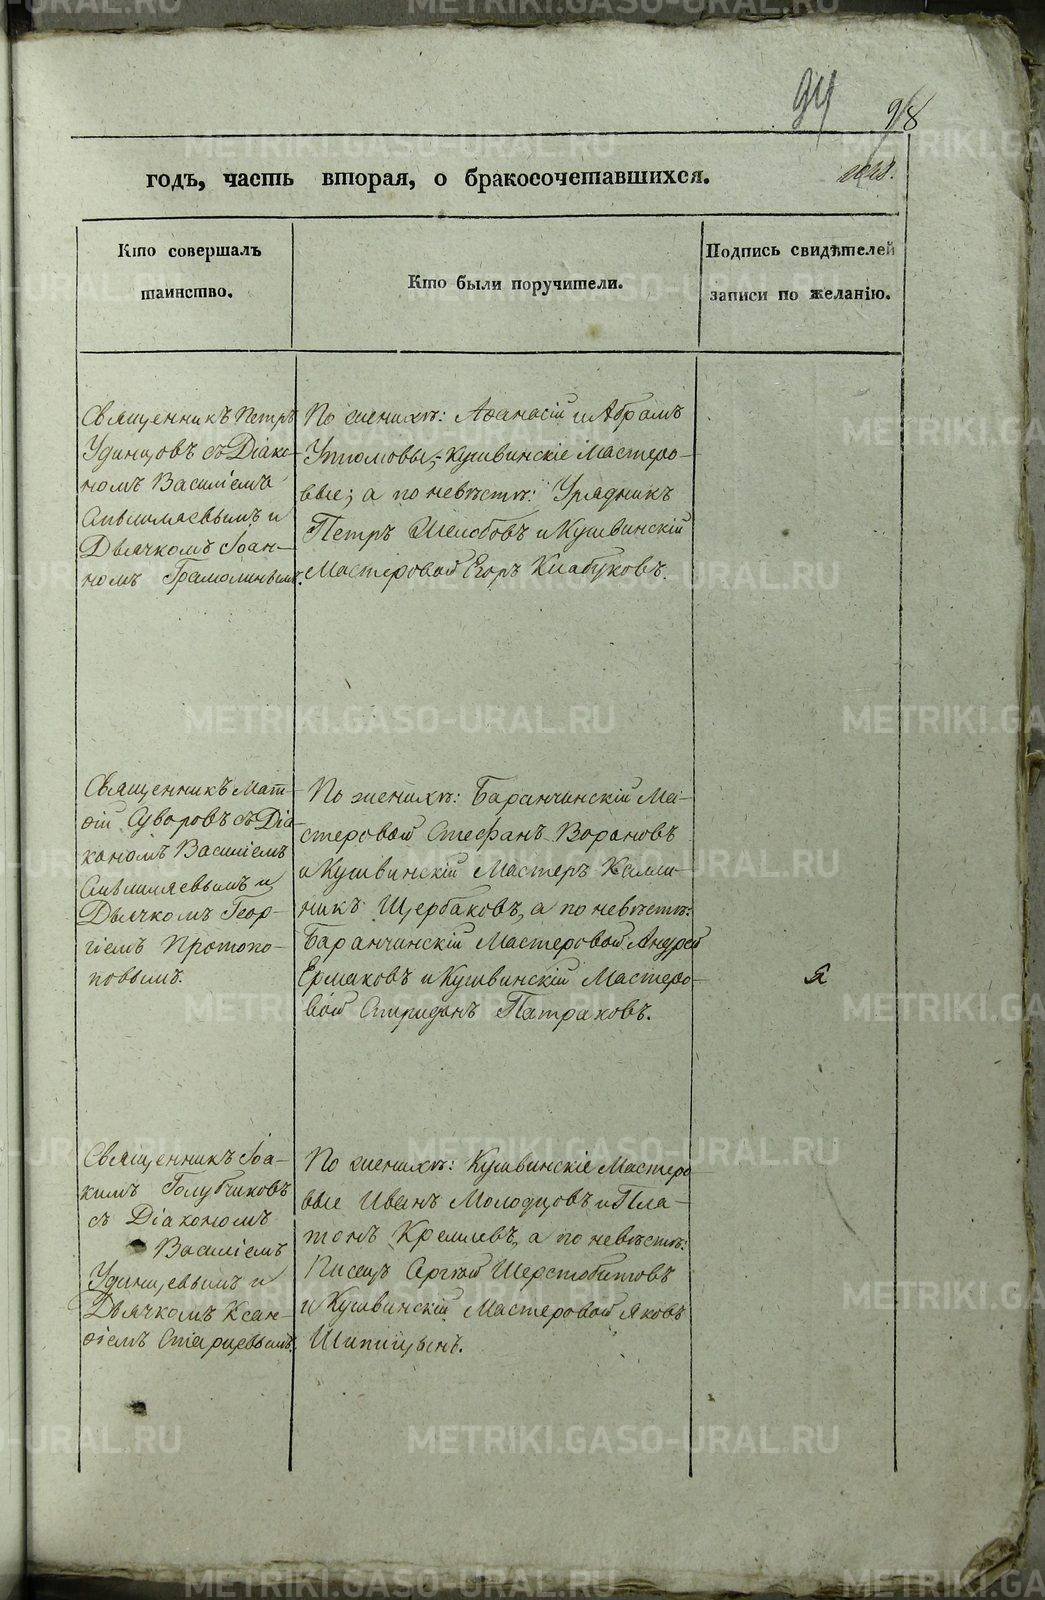 94
98
годъ, часть вторая, о бракосочетавшихся.
Кто совершалъ
таинство.
Кто были поручители.
Подпись свидѣтелей
записи по желанію.
Священникъ Петръ
Удинцовъ съ Діако-
номъ Василіемъ
и
Дьячкомъ Іоан-
номъ
По женихѣ: Аѳанасій и Абрамъ
Утюмовы, Кушвинскіе Мастеро-
вые; а по невѣстѣ: Урядникъ
Петръ Шелобовъ и Кушвинскій
Мастеровой Егоръ Киабуковъ.
Священникъ Мат-
ѳій Суворовъ съ Діа-
кономъ Василіемъ
и
Дьячкомъ Геор-
гіемъ Протопо-
повымъ.
По женихѣ: Баранчинскій Ма-
стеровой Стефанъ Вороновъ
и Кушвинскій Мастеръ Калли-
никъ Щербаковъ, а по невѣстѣ:
Баранчинскій Мастеровой Андрей
Ермаковъ и Кушвинскій Мастеро-
вой Спиридонъ Патраковъ.
Священникъ Іоа-
кимъ Голубчиковъ
съ Діакономъ
Василіемъ
Удинцевымъ и
Дьячкомъ Ксан-
ѳіемъ Старцевымъ.
По женихѣ: Кушвинскіе Мастеро
вые Иванъ Молодцовъ и Пла-
тонъ Кремлевъ, а по невѣстѣ:
Писецъ Сергѣй Шерстобитовъ
и Кушвинскій Мастеровой Яковъ
Шипицынъ.
METRIKI.GASO-URAL.RU